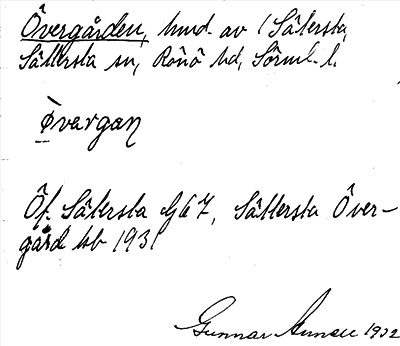 Övergården, hmd av (Sätersta,
Sättersta sn, Rönö hd, Sörml. l.
Øvargan
Öf. Sätersta GG 7, Sättersta Över-
gård kb 1931
Gunnar 1932